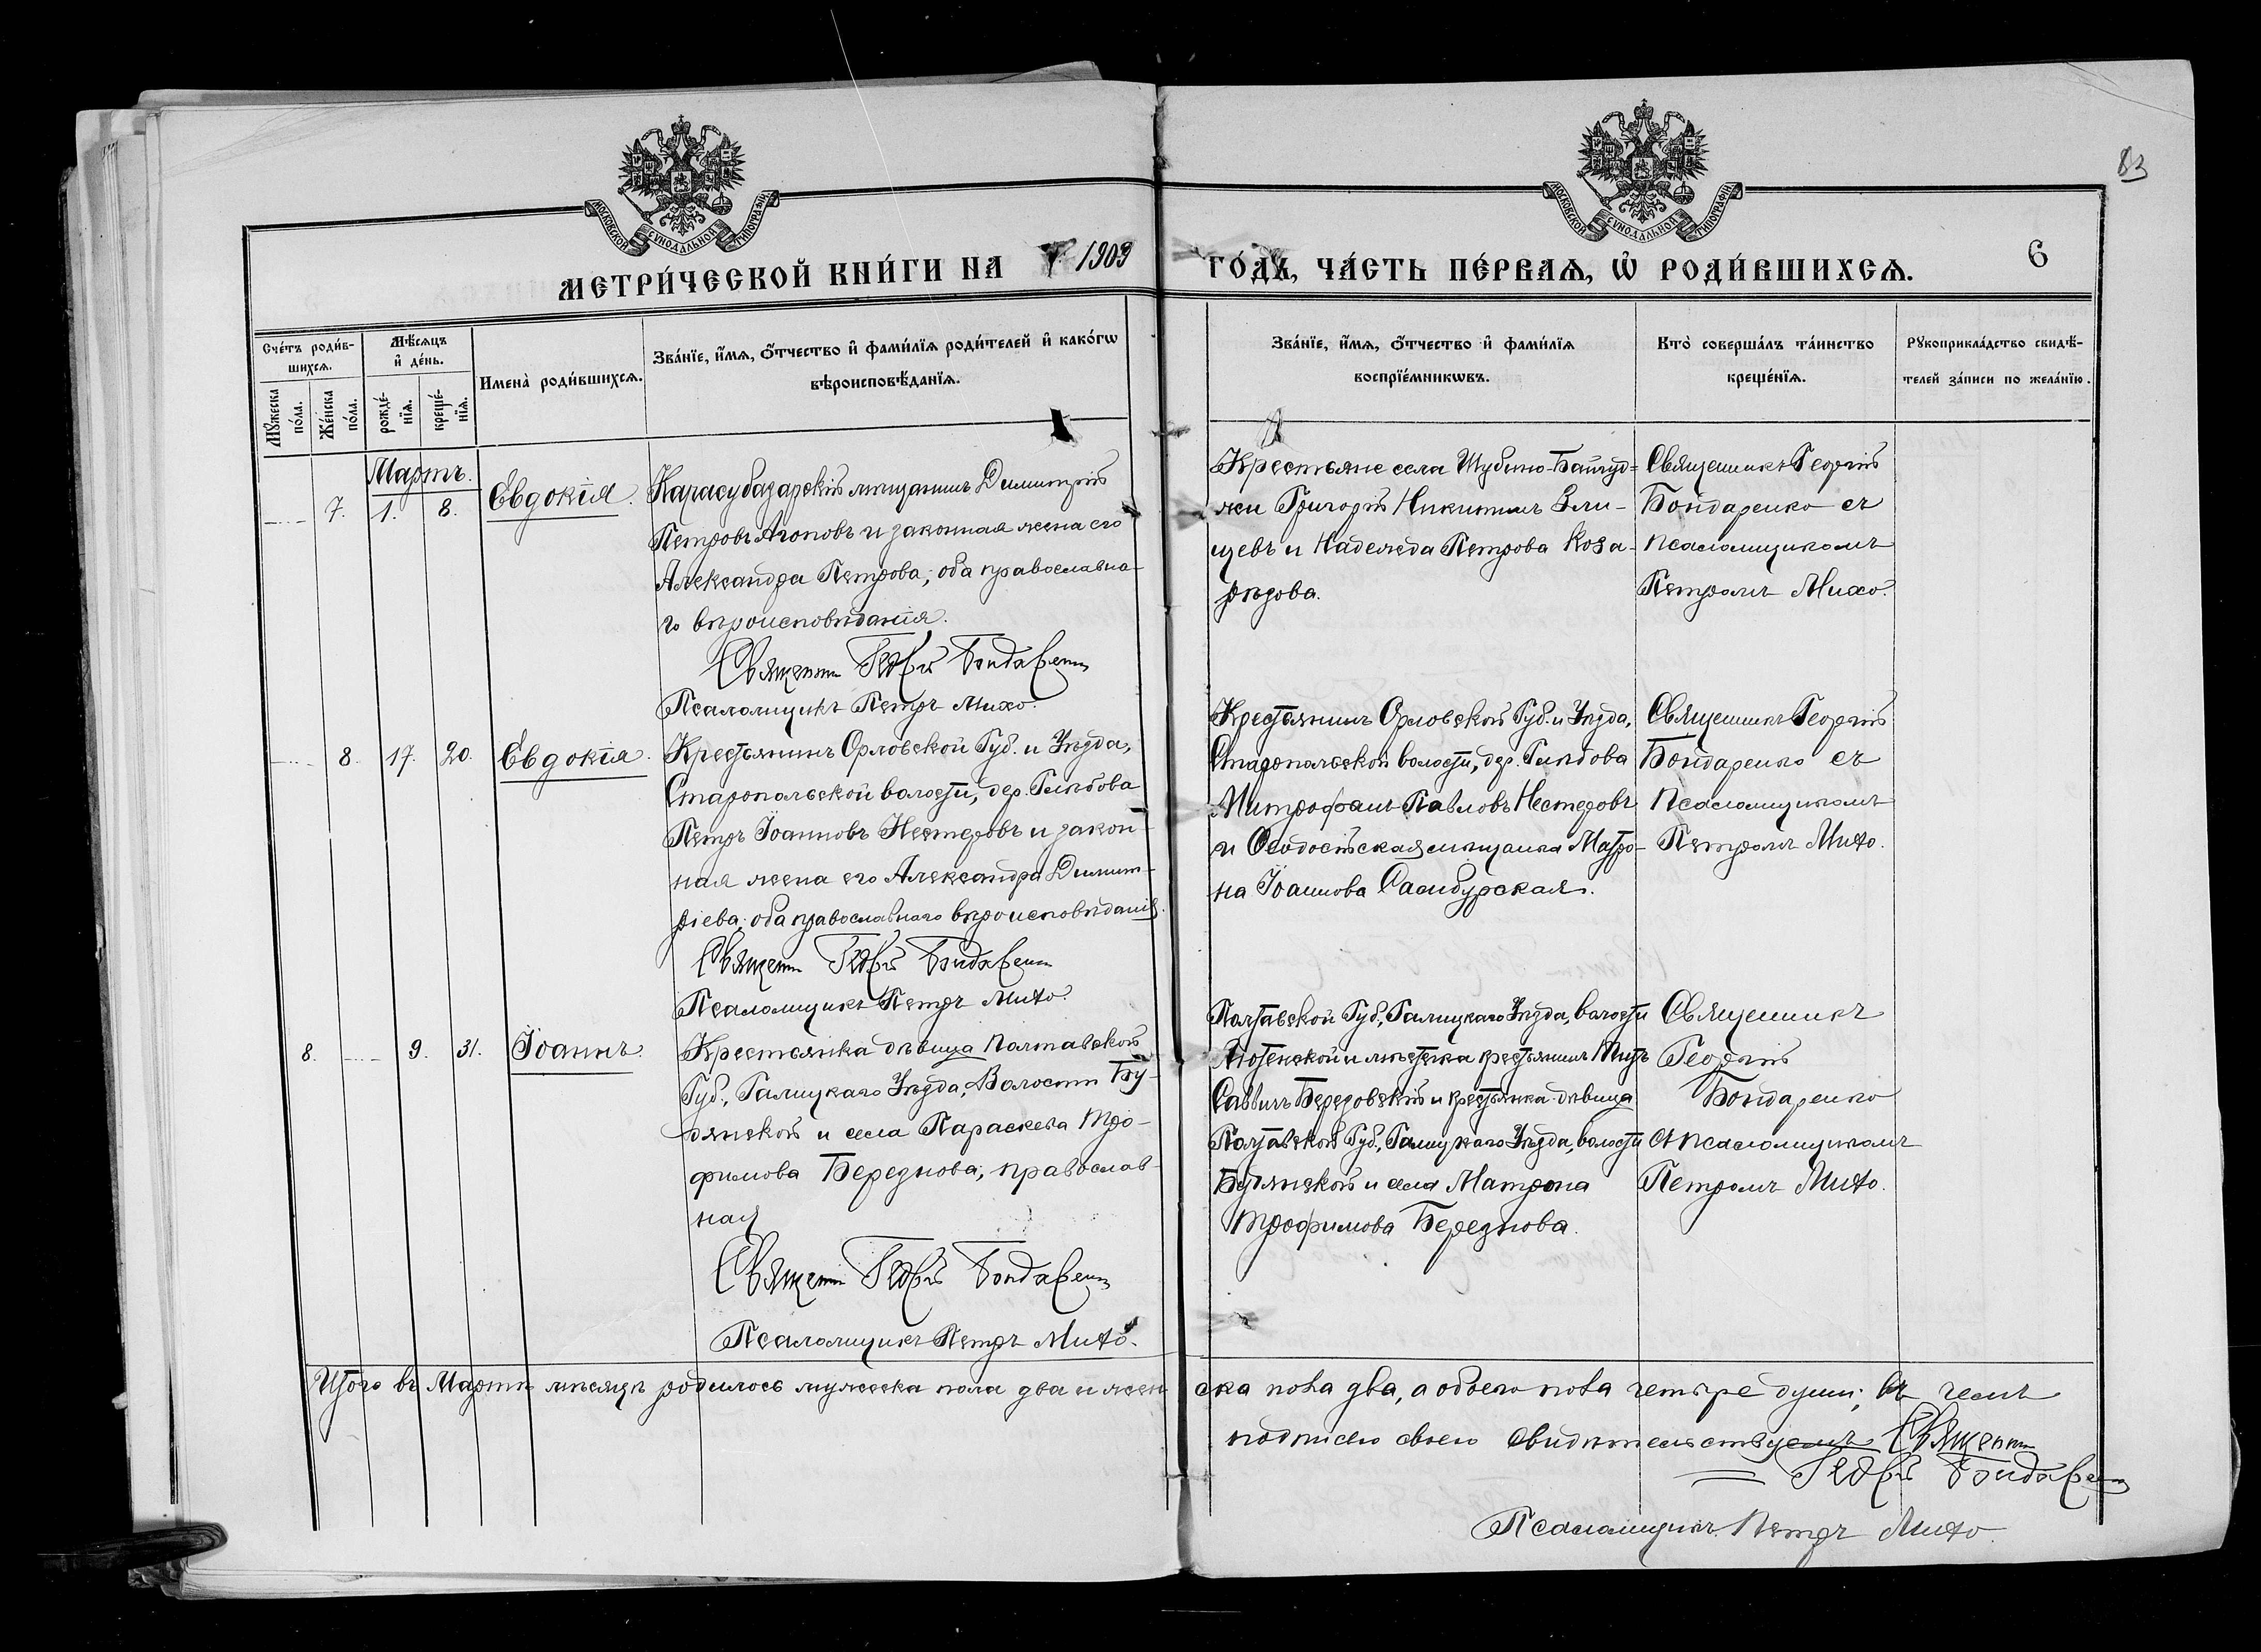 83
МОСКОВСКОЙ СѴНОДАЛЬНОЙ ТИПОГРАФІИ
МОСКОВСКОЙ СѴНОДАЛЬНОЙ ТИПОГРАФІИ
МЕТРИ́ЧЕСКОЙ КНИ́ГИ НА 1909 ГО́ДЪ, ЧА́СТЬ ПЕ́РВАѦ, Ѡ҆ РОДИ́ВШИХСѦ. 6
Сче́тъ роди́в-
шихсѧ.
Мꙋ́жеска по́ла.
Же́нска по́ла.
Мѣ́сѧцъ
и҆ де́нь.
рожде́-
нїѧ.
креще́-
нїѧ.
Имена̀ роди́вшихсѧ.
Зва́нїе, и҆́мѧ, ѻ҆́тчество и҆ фами́лїѧ роди́телей и҆ како́гѡ
вѣроисповѣ́данїѧ.
Зва́нїе, и҆́мѧ, ѻ҆́тчество и҆ фами́лїѧ
воспрїе́мникѡвъ.
Кто̀ соверша́лъ та́инство
креще́нїѧ.
Рꙋкоприкла́дство свидѣ́-
телей за́писи по жела́нїю.
Мартъ.
7. 1. 8. Евдокія.
Карасубазарскій мѣщанинъ Димитрій
Петровъ Агоповъ и законная жена его
Александра Петрова; оба православна-
го вѣроисповѣданія.
Священник Георгій Бондаренко
Псаломщикъ Петръ Михо.
Крестьяне села Шубино-Байгуд=
жи Григорій Никитинъ
и Надежда Петрова Коза-
рѣзова.
Священникъ Георгій
Бондаренко съ
псаломщикомъ
Петромъ Михо.
8. 17. 20. Евдокія.
Крестьянинъ Орловской Губ. и Уѣзда,
Старопольской волости, дер.
Петръ Іоанновъ Нестеровъ и закон-
ная жена его Александра Димит-
ріева; оба православнаго вѣроисповѣданія.
Священник Георгій Бондаренко
Псаломщикъ Петръ Михо.
Крестьянинъ Орловской Губ. и Уѣзда,
Старопольской волости, дер.
Митрофанъ Павловъ Нестеровъ
и Ѳеодосійская мѣщанка Матро-
на Іоаннова Самбурская.
Священникъ Георгій
Бондаренко съ
Псаломщикомъ
Петромъ Михо.
8. 9. 31. Іоаннъ.
Крестьянка дѣвица Полтавской
Губ., Гадицкаго Уѣзда, Волости Бу-
дянской и села Параскева Тро-
фимова Березнова, православ-
ная
Священник Георгій Бондаренко
Псаломщикъ Петръ Михо.
Полтавской Губ., Гадицкаго Уѣзда, волости
Лютенской и мѣстечка крестьянинъ Титъ
Саввинъ Березовскій и крестьянка-дѣвица
Полтавской Губ., Гадицкаго Уѣзда, волости
Будянской и села Матрона
Трофимова Березнова.
Священникъ
Георгій
Бондаренко
съ псаломщикомъ
Петромъ Михо.
Итого въ Мартѣ мѣсяцѣ родилось мужеска пола два и женска пола два, а обоего пола четыре души; въ чемъ
подписью своею свидѣтельствуемъ Священник
Георгій Бондаренко
Псаломщикъ Петръ Михо.